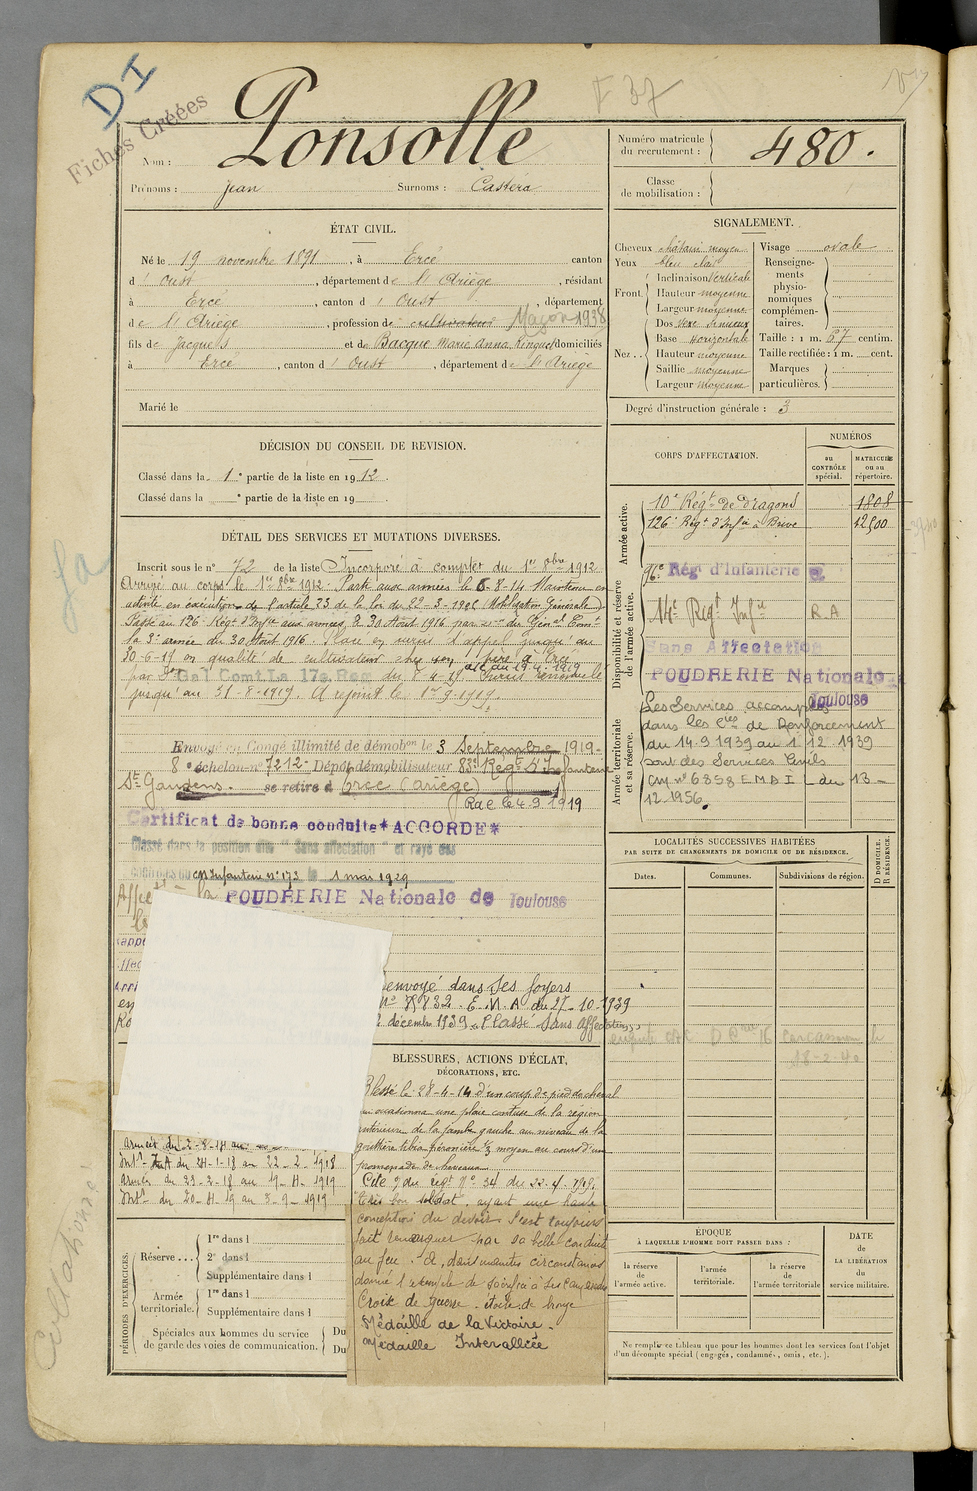 DI
Fiches Créées
F 37
Nom : Ponsolle
Prénoms : Jean Surnoms : Castéra
Numéro matricule
du recrutement : 480.
Classe
de mobilisation :
ÉTAT CIVIL.
Né le 19 novembre 1891, à Ercé canton
d'Oust, département de l'Ariège, résidant
à Ercé, canton d'Oust, département
de l'Ariège, profession de cultivateur Maçon 1938
fils de Jacques et de Bacque Marie Anna domiciliés
à Ercé, canton d'Oust, département de l'Ariège
Marié le
SIGNALEMENT.
Cheveux châtain moyen
Yeux bleu clair
Front. Inclinaison Verticale
Hauteur moyenne
Largeur moyenne
Nez.. Dos sinueux
Base horizontale
Hauteur moyenne
Saillie moyenne
Largeur moyenne
Visage ovale
Renseigne-
ments
physio-
nomiques
complémen-
taires.
Taille : 1 m. 67 centim.
Taille rectifiée : 1 m. cent.
Marques
particulières.
Degré d'instruction générale : 3
DÉCISION DU CONSEIL DE REVISION.
Classé dans la 1e partie de la liste en 1912.
Classé dans la e partie de la liste en 19 .
DÉTAIL DES SERVICES ET MUTATIONS DIVERSES.
Inscrit sous le n° 72 de la liste Incorporé à compter du 1er 8bre 1912
Arrivé au corps le 1er 8bre 1912. Parti aux armées le 6-8-14 Maintenu en
activité en exécution de l'article 33 de la loi du (Mobilisation Générale)
Passé au 126e Régt d'Infie aux armées le 30 Août 1916 par du Génal Comt
la 3e armée du 30 Août 1916. Placé en sursis d'appel jusqu'au
30-6-19 en qualité de cultivateur chez son père à Ercé
par Gal Comt. La 17e Reg du 8-4-19. Sursis renouvelé
jusqu'au 31-8-1919. A rejoint le 1er 9-1919.
Envoyé en Congé illimité de démobon le 3 Septembre 1919-
8e échelon n° 7212- Dépôt démobilisateur 83e Régt d'Infanterie
St Gaudens. se retire à Ercé (Ariège)
Rac le 4 9 1919
Certificat de bonne conduite *ACCORDE*
Classé dans la position dite "Sans affectation" et rayé des
contrôles du CM Infanterie n° 173 le 1 mai 1929
la POUDRERIE Nationale de Toulouse
envoyé dans ses foyers
E.M.A du 27-10-1939
décembre 1939 Classé Sans Affectation
CORPS D'AFFECTATION.
NUMÉROS
au
CONTRÔLE
spécial.
MATRICULE
ou au
répertoire.
Armée active.
10e Régt de dragons 1808
126e Régt d'Infie à Brive 12500
Disponibilité et réserve
de l'armée active.
96e Régt d'Infanterie
14e Régt Infie R.A
Sans Affectation
POUDRERIE Nationale
Toulouse
Armée territoriale
et sa réserve.
Les Services accomplis
dans les Cies de Renforcement
du 14.9 1939 au 1 12 1939
sont des Services Civils
CM n° 6858 EMDI du 13-
12-1956.
LOCALITÉS SUCCESSIVES HABITÉES
PAR SUITE DE CHANGEMENTS DE DOMICILE OU DE RÉSIDENCE.
Dates.
Communes.
Subdivisions de région.
D DOMICILE.
R RÉSIDENCE.
Carcassonne le
18-2-40
BLESSURES, ACTIONS D'ÉCLAT,
DÉCORATIONS, ETC.
Blessé le 28-4-14 d'un coup de pied de cheval
qui occasionna une plaie contuse de la région
antérieure de la jambe gauche au niveau de la
gouttière tibio péronière ½ moyen au cours d'une
promenade de chevaux
Cité du régt N° 34 du 22.4.1918:
"Très bon soldat, ayant une haute
conception du devoir. S'est toujours
fait remarquer par sa belle conduite
au feu. A, dans maintes circonstances
donné l'exemple de sacrifice à ses camarades
Croix de guerre. étoile de bronze
Médaille de la Victoire.
Médaille Interalliée
Armées du 2-8-14 au
Intr. du 24-1-18 au 22-2-1918
Armées du 23-2-18 au 19-4-1919
Intr. du 20-4-19 au 3-9-1919
PÉRIODES D'EXERCICES.
Réserve... 1re dans l
2e dans l
Supplémentaire dans l
Armée
territoriale. 1re dans l
Supplémentaire dans l
Spéciales aux hommes du service
de garde des voies de communication. Du
Du
ÉPOQUE
À LAQUELLE L'HOMME DOIT PASSER DANS :
la réserve
de
l'armée active.
l'armée
territoriale.
la réserve
de
l'armée territoriale
DATE
de
LA LIBÉRATION
du
service militaire.
Ne remplir ce tableau que pour les hommes dont les services font l'objet
d'un décompte spécial (engagés, condamnés, omis, etc.).
Collationné